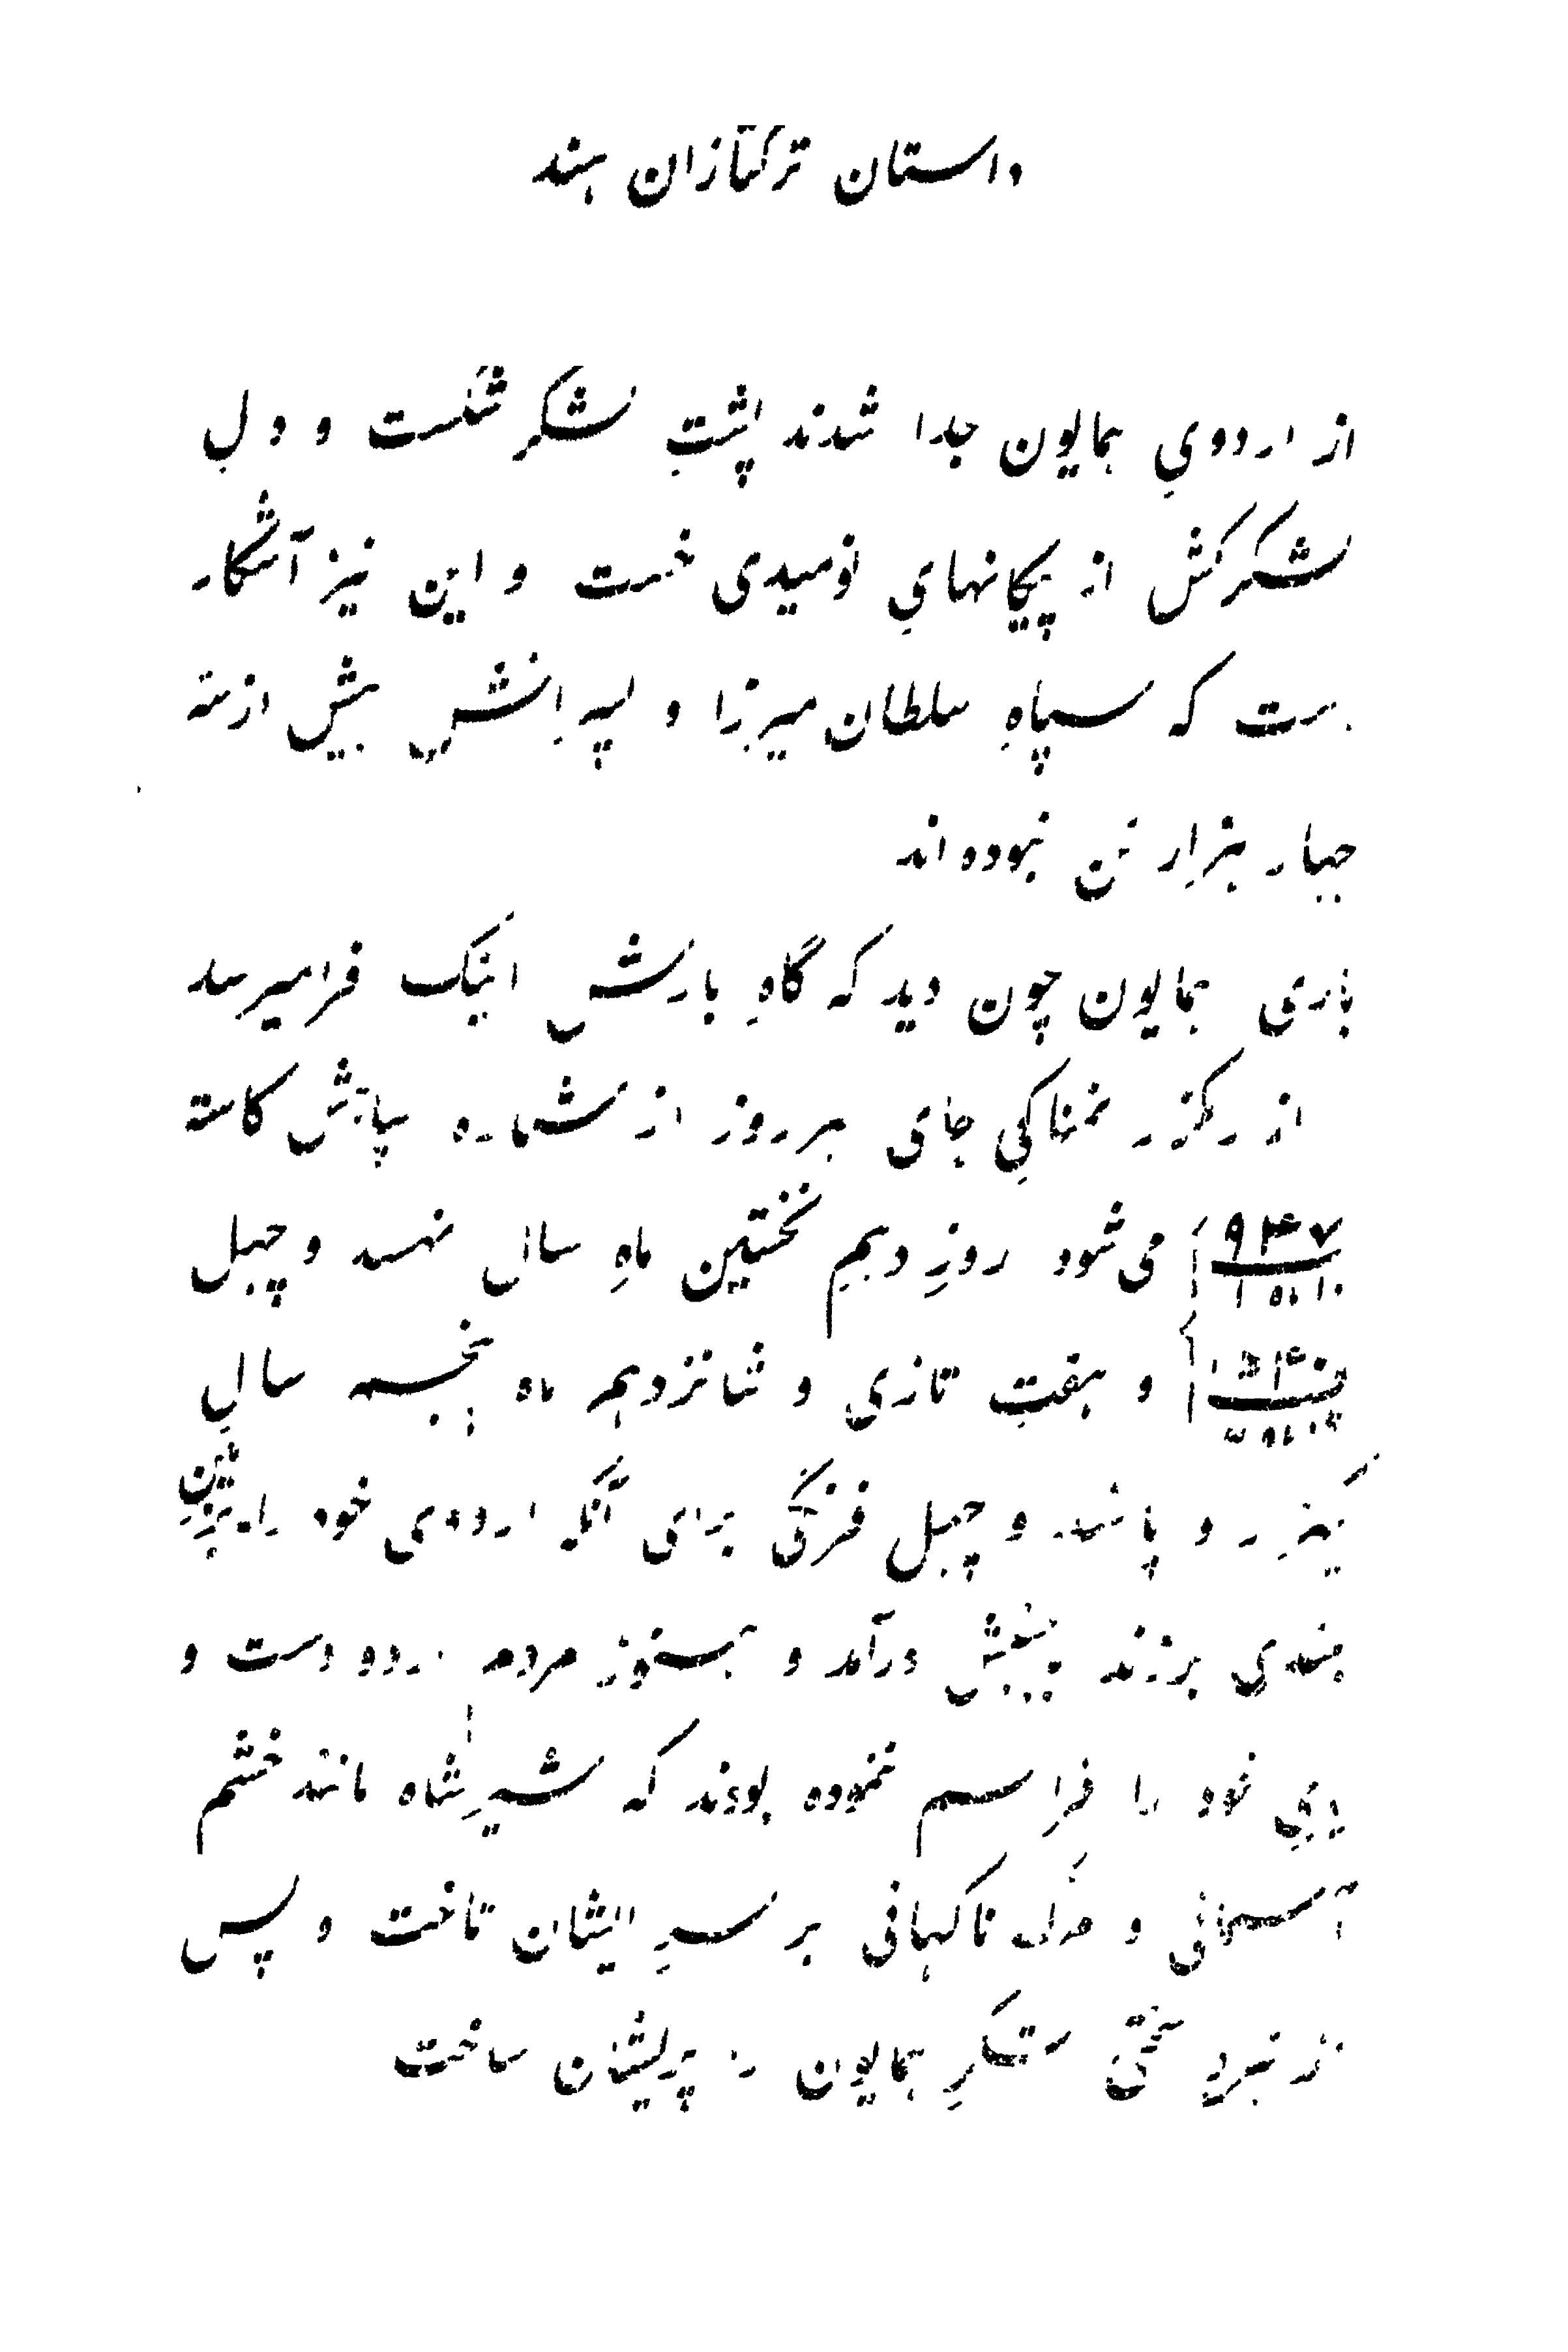 داستان ترکتازان هند
از اردویِ همایون جدا شدند پشتِ لشکر شکست و دلِ
لشکرکش از پیکانهایِ نومیدی خست و این نیز آشکار
است که سپاهِ سلطان میرزا و پسرانش بیش از سه
چهار هزار تن نبوده‌اند
باری همایون چون دید که گاهِ بارش اینک فرا میرسد
از رهگذر نمناکیِ جای هر روز از شماره سپاهش کاسته
می‌شود روزِ دهمِ نخستین ماهِ سال نهصد و چهل
۹۴۷
۱۰
و هفتِ تازی و شانزدهم ماه پنجم سالِ
۱۵۴۰
یکهزار و پانصد و چهل فرنگی برای آنکه اردوی خود را به زمینِ
بلندی برزند بجنبش درآمد و هنوز مردم اردو دست و
پای خود را فراهم ننموده بودند که شیرشاه مانند خشم
آسمانی و مرگ ناگهانی بر سرِ ایشان تاخت و پس
از نبرد سختی لشکرِ همایون را پریشان ساخت